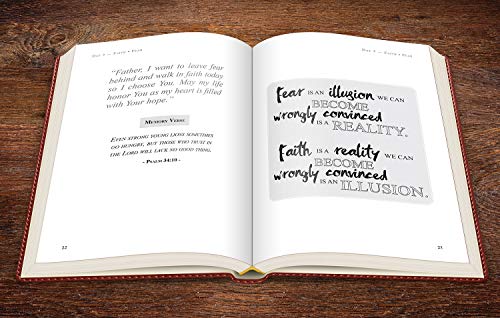 Day 5 — Faith • Fear
"Father, I want to leave fear
behind and walk in faith today
so I choose You. May my life
honor You as my heart is filled
with Your hope."
Memory Verse
Even strong young lions sometimes
go hungry, but those who trust in
the Lord will lack no good thing.
- Psalm 34:10 -
22
Day 5 — Faith • Fear
Fear IS AN illusion WE CAN
BECOME
wrongly convinced
IS A REALITY.
Faith IS A reality WE CAN
BECOME
wrongly convinced
IS AN ILLUSION.
23